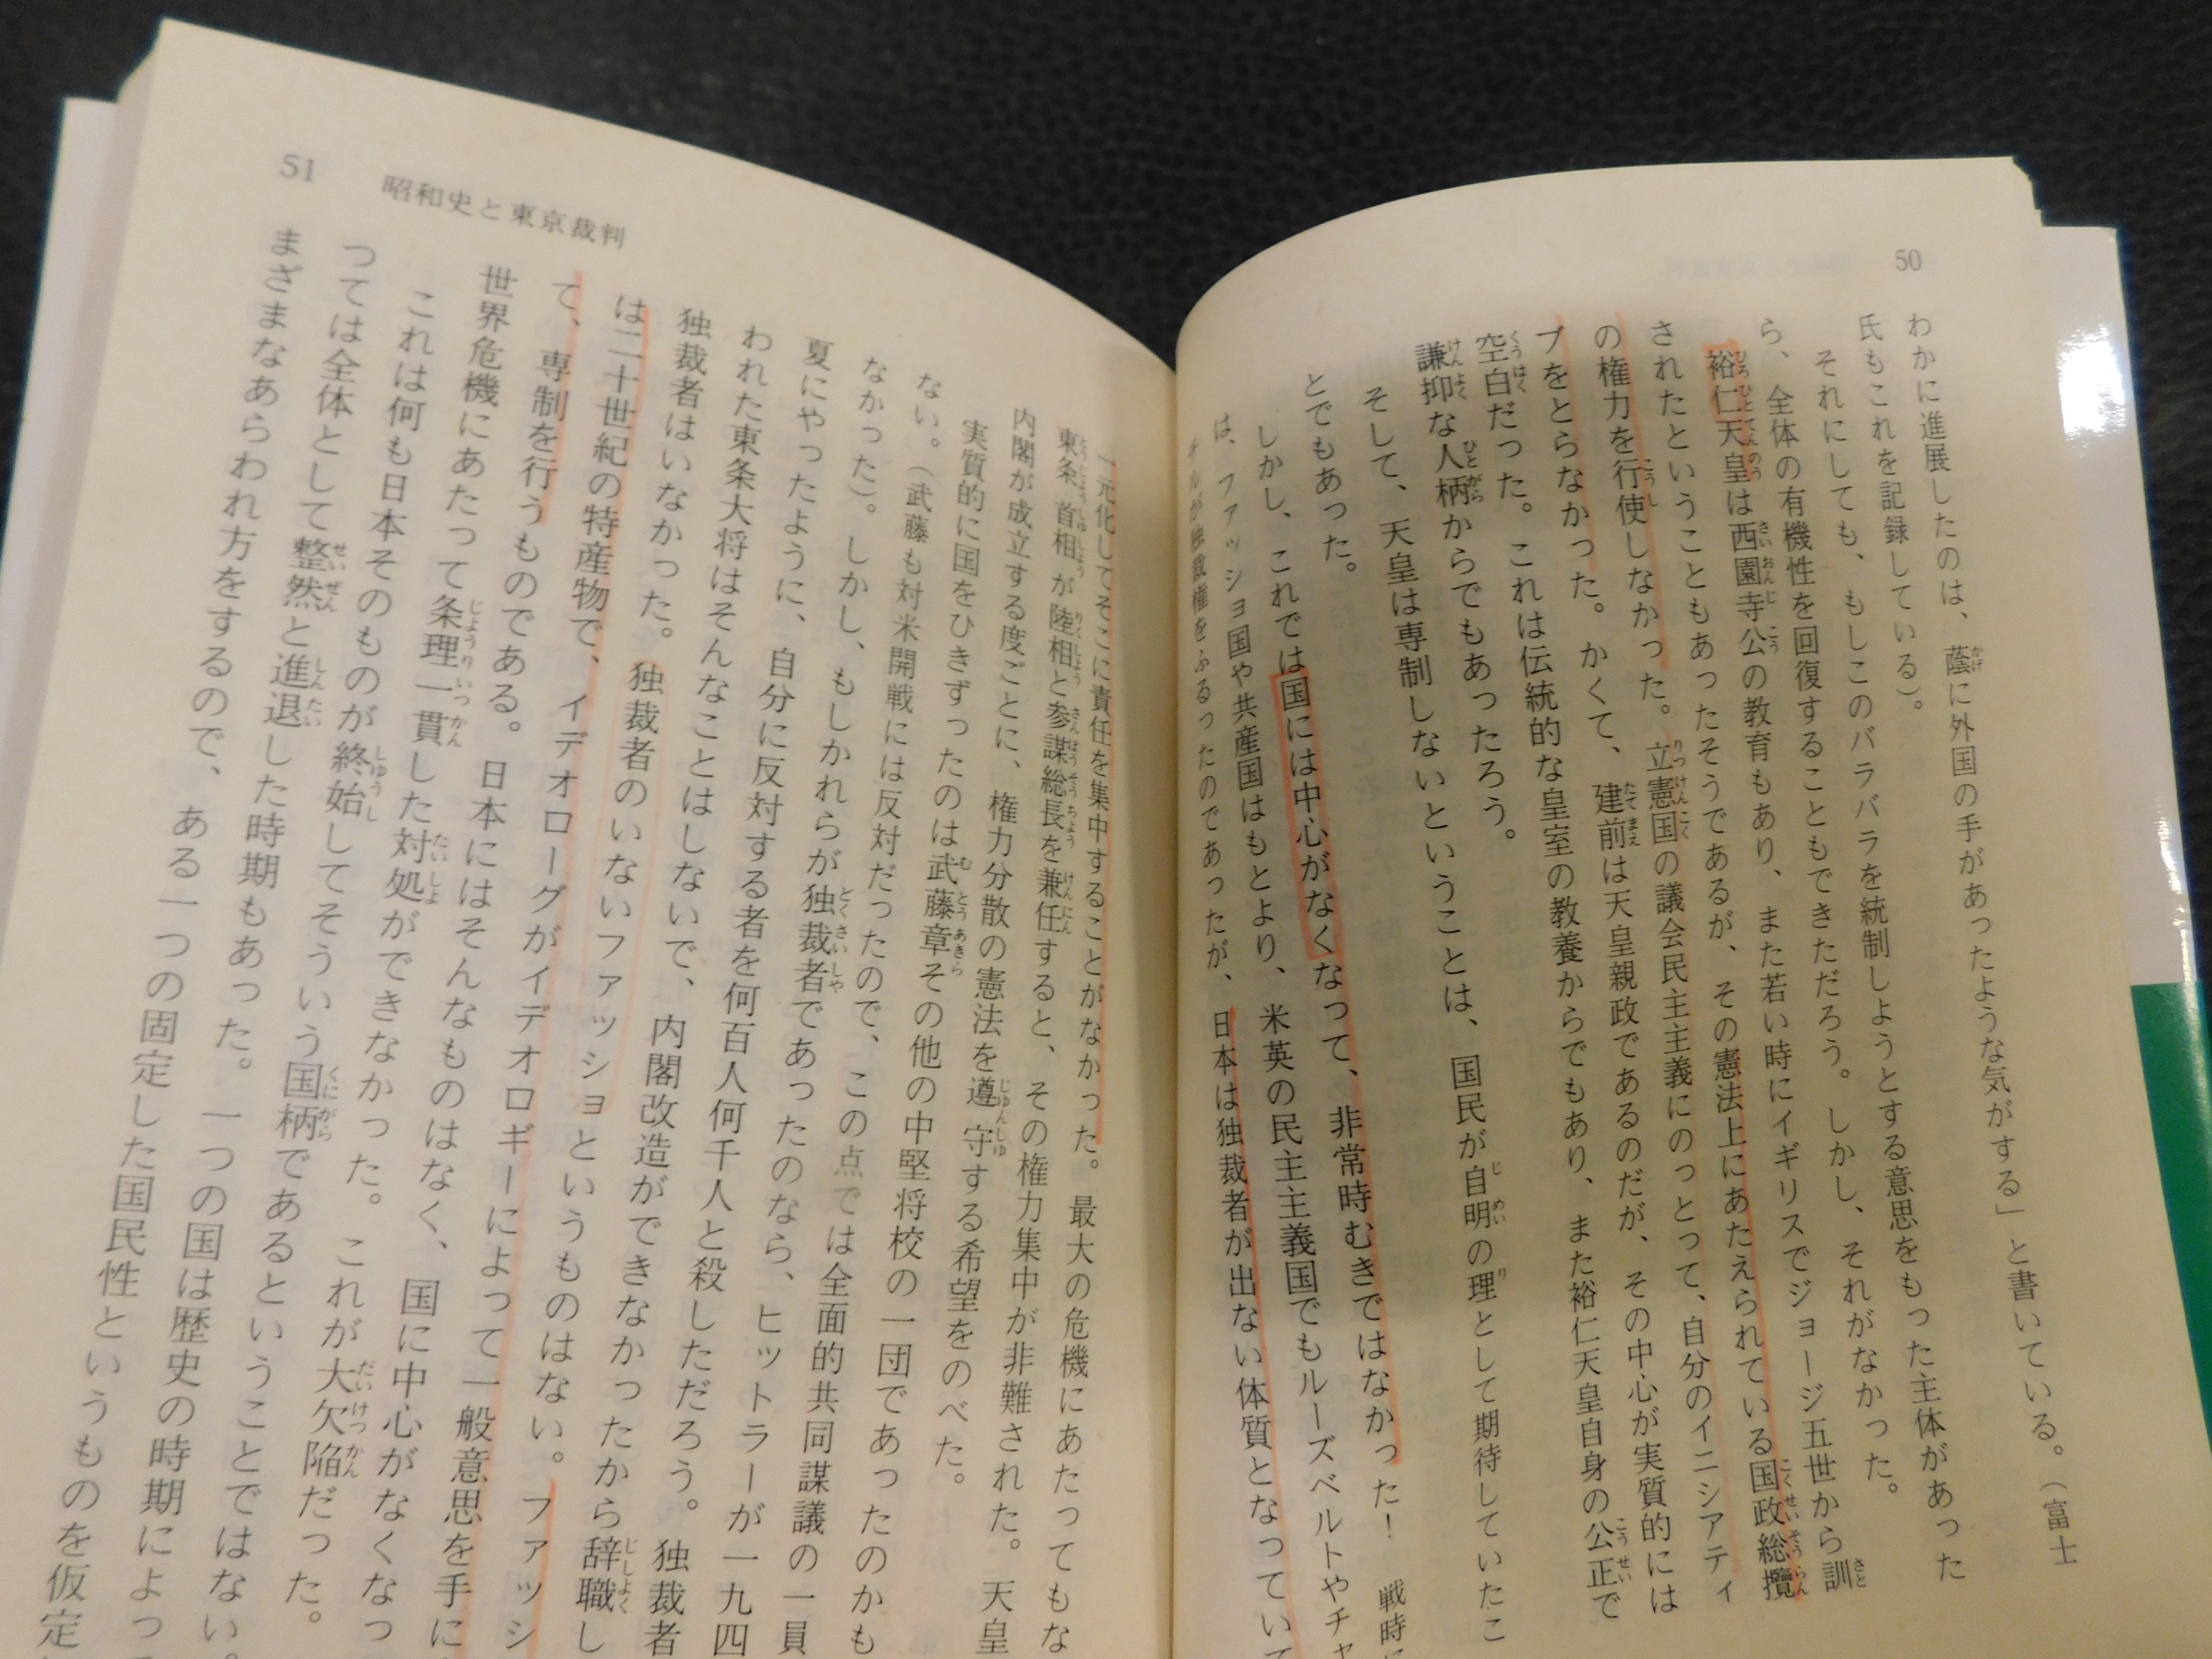 50
わかに進展したのは、蔭に外国の手があったような気がする」と書いている。（富士
氏もこれを記録している）。
それにしても、もしこのバラバラを統制しようとする意思をもった主体があった
ら、全体の有機性を回復することもできただろう。しかし、それがなかった。
裕仁天皇は西園寺公の教育もあり、また若い時にイギリスでジョージ五世から訓
されたということもあったそうであるが、その憲法上にあたえられている国政総攬
の権力を行使しなかった。立憲国の議会民主主義にのっとって、自分のイニシアティ
ブをとらなかった。かくて、建前は天皇親政であるのだが、その中心が実質的には
空白だった。これは伝統的な皇室の教養からでもあり、また裕仁天皇自身の公正で
謙抑な人柄からでもあったろう。
そして、天皇は専制しないということは、国民が自明の理として期待していたこ
とでもあった。
しかし、これでは国には中心がなくなって、非常時むきではなかった！　戦時に
は、ファッショ国や共産国はもとより、米英の民主主義国でもルーズベルトやチャ
チルが独裁権をふるったのであったが、日本は独裁者が出ない体質となっていて
51 昭和史と東京裁判
一元化してそこに責任を集中することがなかった。最大の危機にあたってもな
東条首相が陸相と参謀総長を兼任すると、その権力集中が非難された。天皇
内閣が成立する度ごとに、権力分散の憲法を遵守する希望をのべた。
実質的に国をひきずったのは武藤章その他の中堅将校の一団であったのかも
ない。（武藤も対米開戦には反対だったので、この点では全面的共同謀議の一員
なかった）。しかし、もしかれらが独裁者であったのなら、ヒットラーが一九四
夏にやったように、自分に反対する者を何百人何千人と殺しただろう。独裁者
われた東条大将はそんなことはしないで、内閣改造ができなかったから辞職し
独裁者はいなかった。独裁者のいないファッショというものはない。ファッシ
は二十世紀の特産物で、イデオローグがイデオロギーによって一般意思を手に
て、専制を行うものである。日本にはそんなものはなく、国に中心がなくなっ
世界危機にあたって条理一貫した対処ができなかった。これが大欠陥だった。
これは何も日本そのものが終始してそういう国柄であるということではない。
つては全体として整然と進退した時期もあった。一つの国は歴史の時期によっ
まざまなあらわれ方をするので、ある一つの固定した国民性というものを仮定